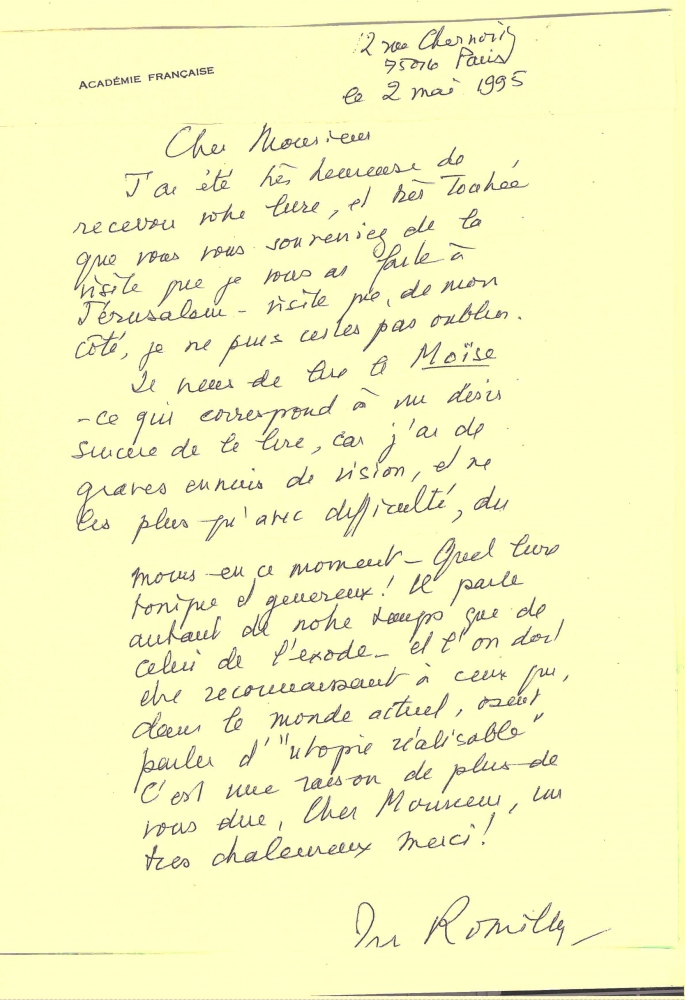 ACADÉMIE FRANÇAISE
12 rue Chernoviz
75016 Paris
le 2 mai 1995
Cher Monsieur
J'ai été très heureuse de
recevoir votre livre, et très touchée
que vous vous souveniez de la
visite que je vous ai faite à
Jérusalem - visite que, de mon
côté, je ne puis certes pas oublier.
Je viens de lire le Moïse
- ce qui correspond à un désir
sincère de le lire, car j'ai de
graves ennuis de vision, et ne
lis plus qu'avec difficulté, du
moins en ce moment - Quel livre
tonique et genereux ! Il parle
autant de notre temps que de
celui de l'exode - et l'on doit
être reconnaissant à ceux qui,
dans le monde actuel, osent
parler d'"utopie réalisable"
C'est une raison de plus de
vous dire, Cher Monsieur, un
tres chaleureux merci !
Romilly